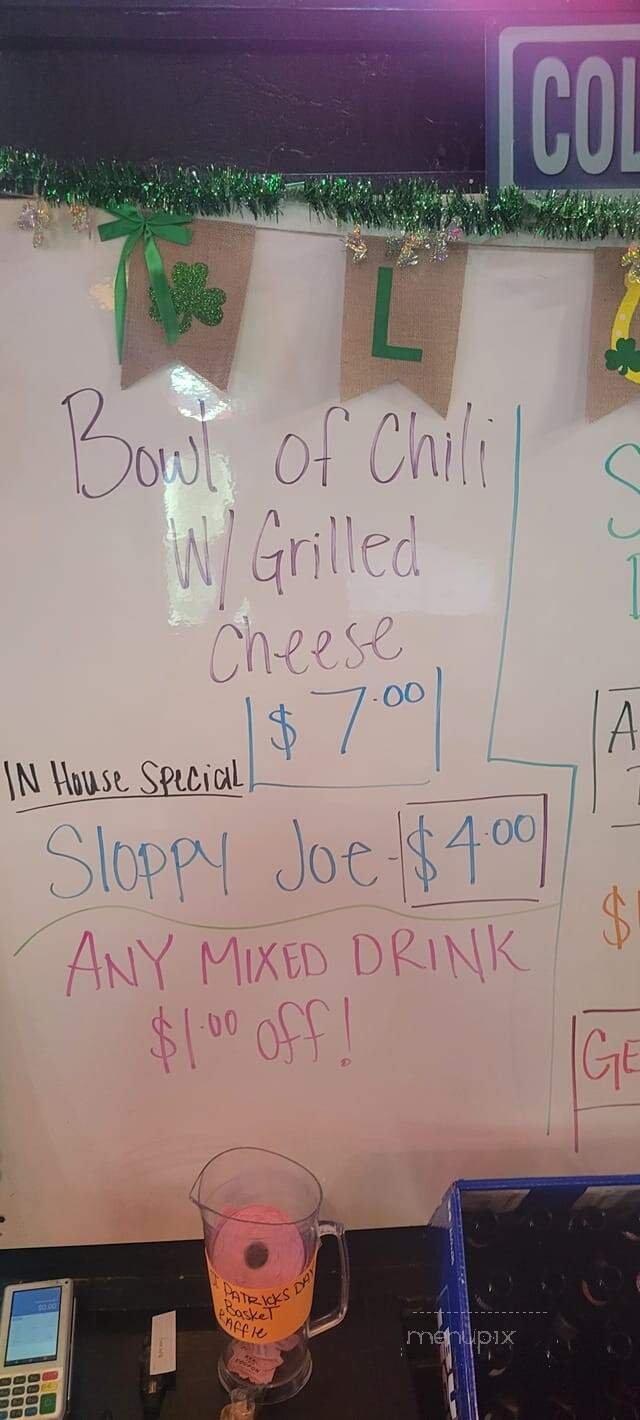 COL
L
Bowl of Chili
W/ Grilled
Cheese
$7.00
IN House Special
Sloppy Joe - $4.00
ANY MIXED DRINK
$1.00 off!
S
A
$1
GE
$0.00
PATRICKS DAY
BaskeT
RAffle
menupix